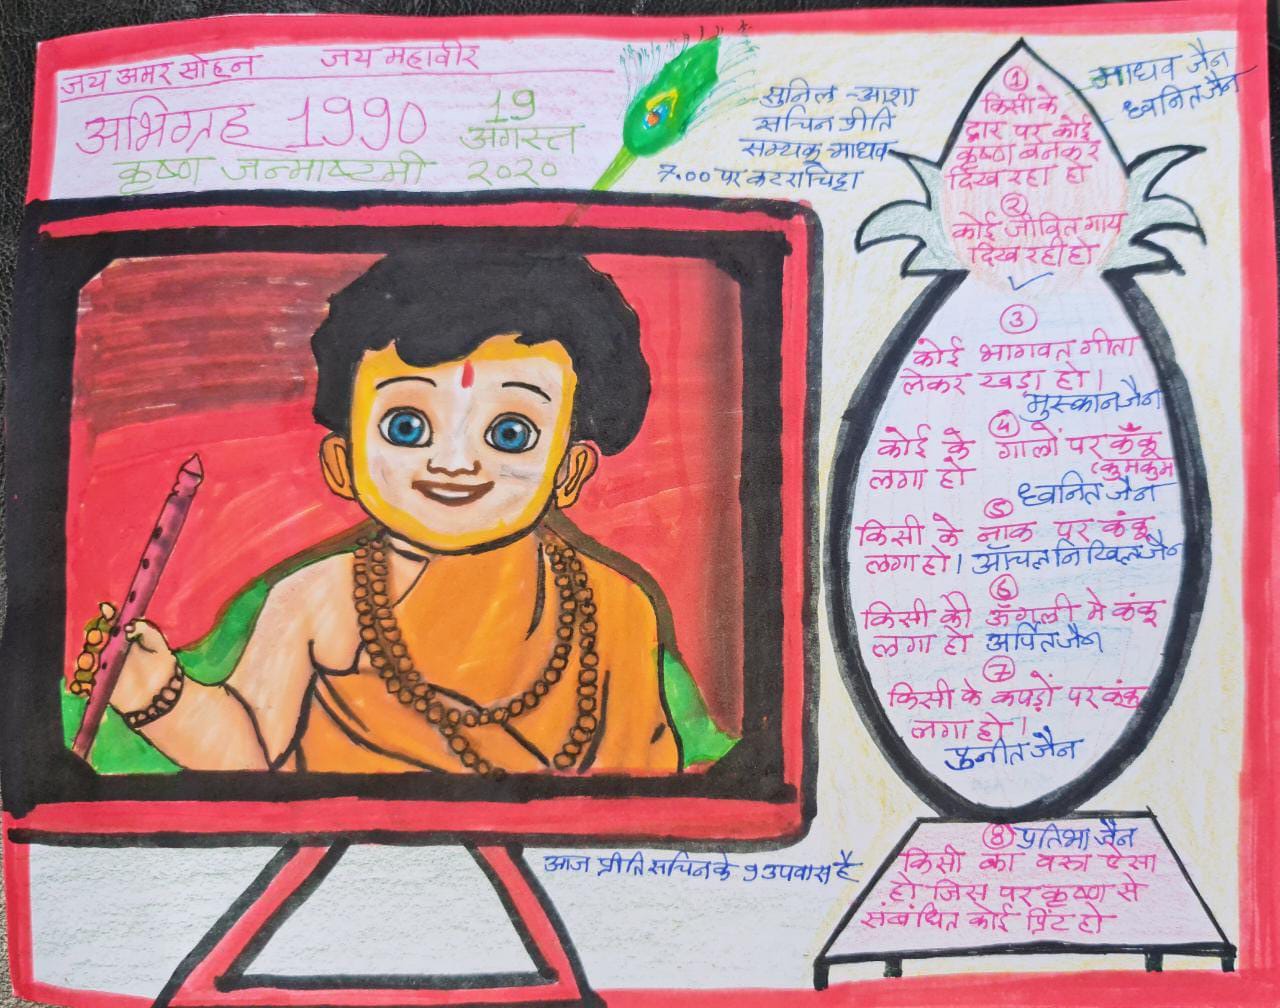 जय अमर सोहन जय महावीर
अभिग्रह 1990 19
अगस्त
कृष्ण जन्माष्टमी २०२०
सुनिल -आशा
सचिन प्रीति
सम्यक् माधव
7.00 पर कटराचिट्टा
माधव जैन
ध्वनित जैन
①
किसी के
द्वार पर कोई
कृष्ण बनकर
दिख रहा हो
②
कोई जीवित गाय
दिख रही हो
③
कोई भागवत् गीता
लेकर खड़ा हो।
मुस्कान जैन
④
कोई के गालों पर कँकू
लगा हो (कुमकुम
ध्वनित जैन
⑤
किसी के नाक पर कंकू
लगा हो। आँचल निखिल जैन
⑥
किसी की ऊँगली मे कंकू
लगा हो अर्पित जैन
⑦
किसी के कपड़ों पर कंकू
लगा हो।
पुनीत जैन
⑧ प्रतिभा जैन
किसी का वस्त्र ऐसा
हो जिस पर कृष्ण से
संबंधित कोई प्रिंट हो
आज प्रीति सचिन के 9 उपवास है